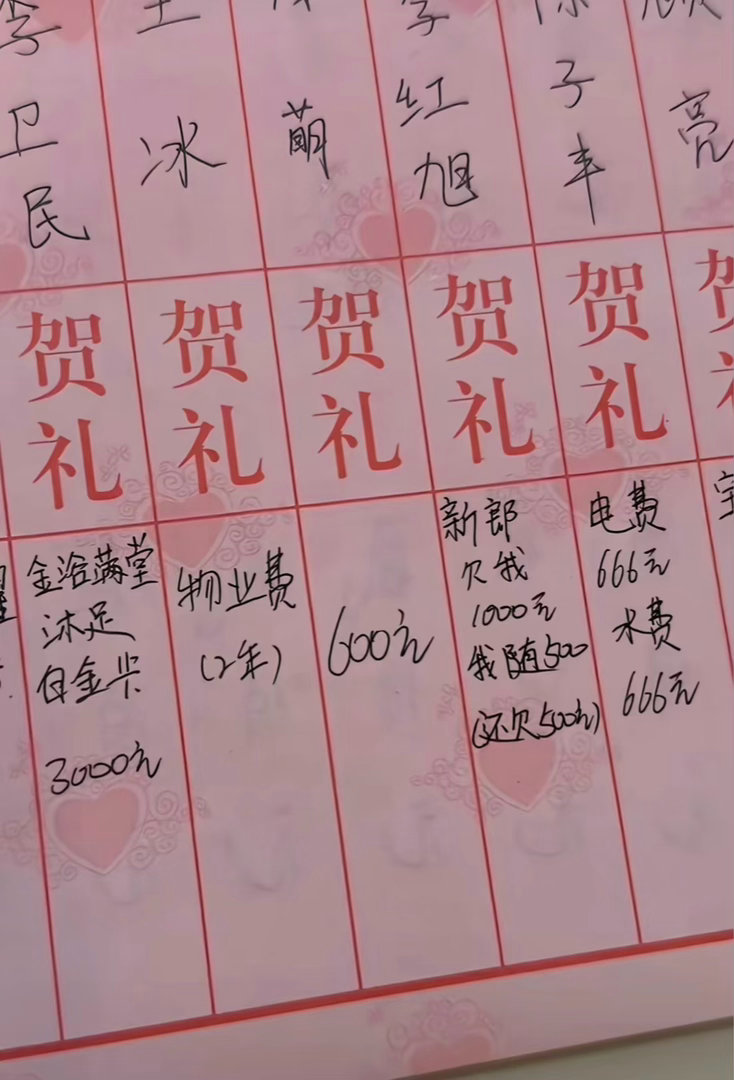 李
卫
民
贺
礼
金浴满堂
沐足
白金卡
3000元
王
冰
贺
礼
物业费
(2年)
萌
贺
礼
600元
李
红
旭
贺
礼
新郎
欠我
1000元
我随500
(还欠500元)
陈
子
丰
贺
礼
电费
666元
水费
666元
顾
亮
贺
礼